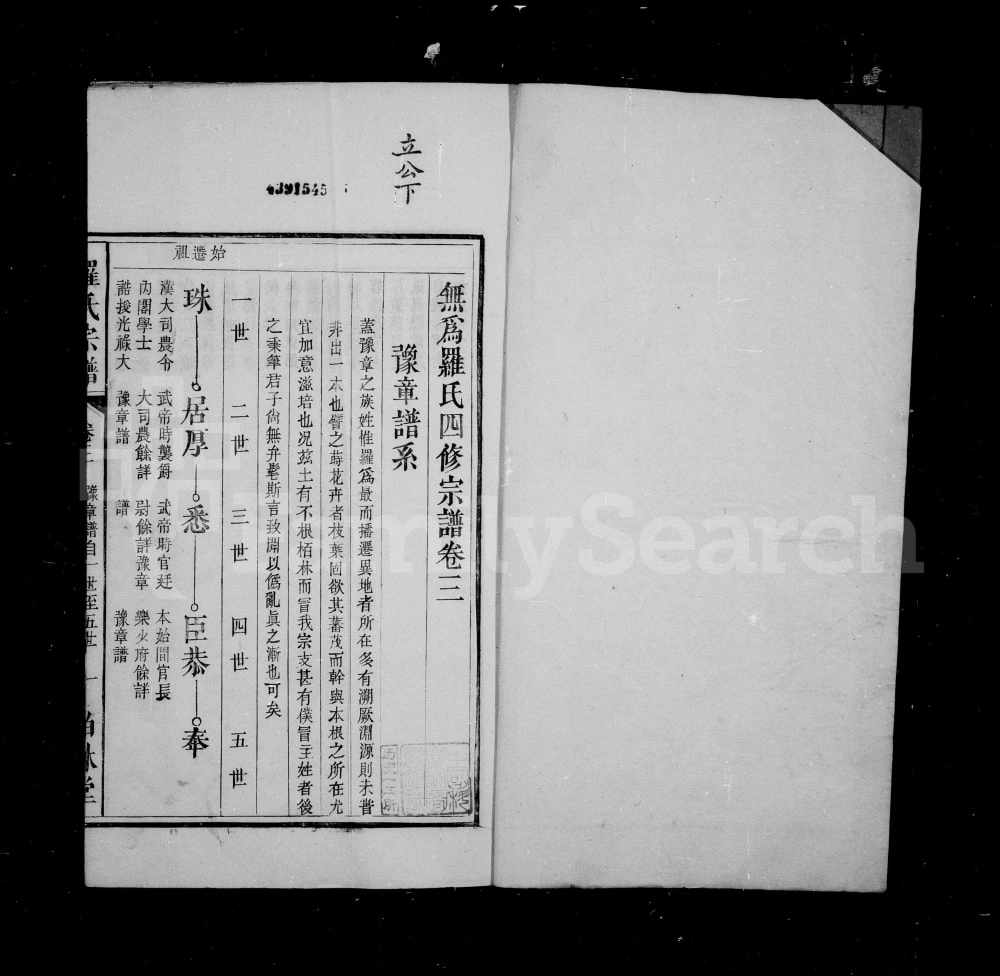 立公下
4391545
無為羅氏四修宗譜卷三
豫章譜系
蓋豫章之族姓惟羅為最而播遷異地者所在多有溯厥淵源則未甞
非出一本也譬之蒔花卉者枝葉固欲其蕃茂而幹與本根之所在尤
宜加意滋培也况玆土有不根栢林而冒我宗支甚有僕冒主姓者後
之秉筆君子尚無弁髦斯言致開以僞亂眞之漸也可矣
一世 二世 三世 四世 五世
始遷祖
珠 居厚 悉 臣恭 奉
漢大司農令
內閣學士
誥授光祿大
武帝時襲爵
大司農餘詳
豫章譜
武帝時官廷
尉餘詳豫章
譜
本始間官長
樂少府餘詳
豫章譜
羅氏宗譜 豫章譜自一世至五世 一 柏林堂
FamilySearch